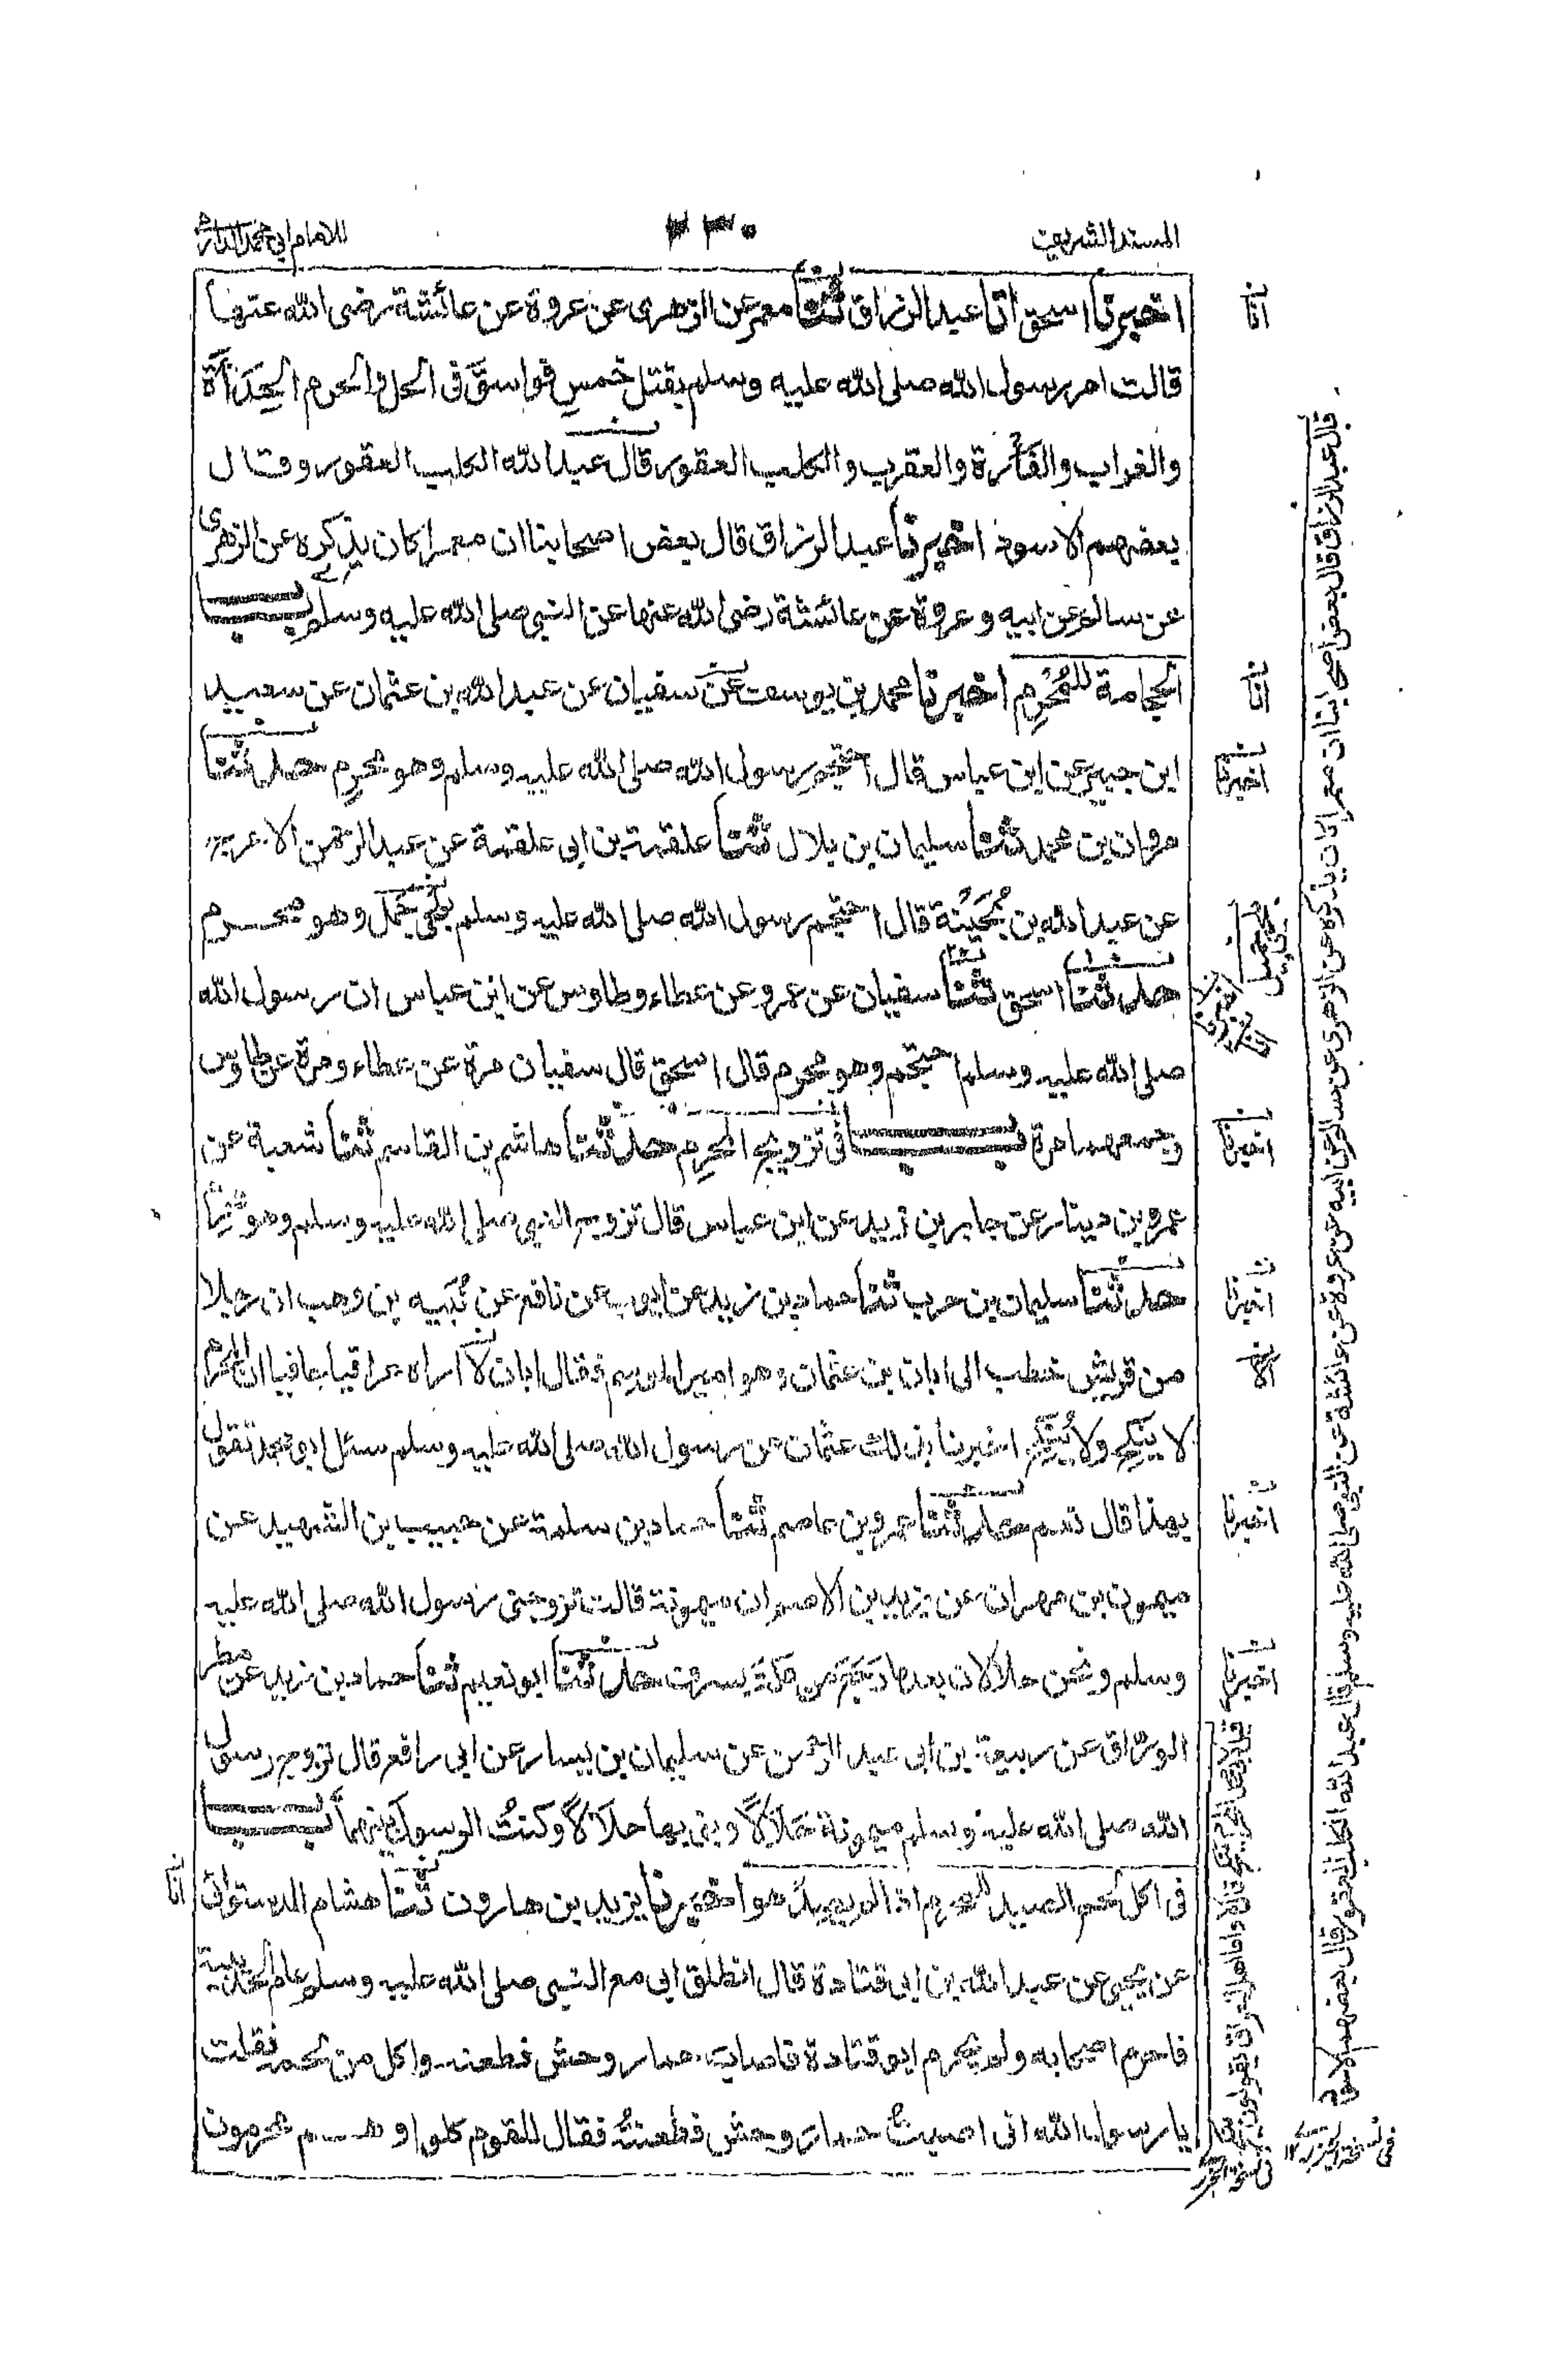 المسند الشريف
٢٣٠
للامام ابي محمد الدارمي
اخبرنا اسحق انا عبد الرزاق ثنا معمر عن الزهرى عن عروة عن عائشة رضى الله عنها
قالت امر رسول الله صلى الله عليه وسلم بقتل خمس فواسق فى الحل والحرم الحِدَأة
والغراب والفأرة والعقرب والكلب العقور قال عبد الله الكلب العقور وقال
بعضهم الاسود اخبرنا عبد الرزاق قال بعض اصحابنا ان معمرا كان يذكره عن الزهرى
عن سالم عن ابيه وعروة عن عائشة رضى الله عنها عن النبى صلى الله عليه وسلم باب
الحجامة للمُحْرِم اخبرنا محمد بن يوسف عن سفيان عن عبد الله بن عثمان عن سعيد
ابن جبير عن ابن عباس قال احتجم رسول الله صلى الله عليه وسلم وهو محرم حدثنا
مروان بن محمد ثنا سليمان بن بلال ثنا علقمة بن ابى علقمة عن عبد الرحمن الاعرج
عن عبد الله بن بُحَيْنَة قال احتجم رسول الله صلى الله عليه وسلم بلحى جمل وهو محرم
حدثنا اسحق ثنا سفيان عن عمرو عن عطاء وطاوس عن ابن عباس ان رسول الله
صلى الله عليه وسلم احتجم وهو محرم قال اسحق قال سفيان مرة عن عطاء ومرة عن طاوس
وجمعهما مرة باب فى تزويج المحرم حدثنا هاشم بن القاسم ثنا شعبة عن
عمرو بن دينار عن جابر بن زيد عن ابن عباس قال تزوج النبى صلى الله عليه وسلم وهو
حدثنا سليمان بن حرب ثنا حماد بن زيد عن ايوب عن نافع عن نُبَيه بن وهب ان رجلا
من قريش خطب الى ابان بن عثمان وهو امير الموسم فقال ابان لا اراه عراقيا جافيا ان المحرم
لا يَنكِح ولا يُنكِح اخبرنا بذلك عثمان عن رسول الله صلى الله عليه وسلم سئل ابو محمد تقول
بهذا قال نعم حدثنا عمرو بن عاصم ثنا حماد بن سلمة عن حبيب بن الشهيد عن
ميمون بن مهران عن يزيد بن الاصم ان ميمونة قالت تزوجنى رسول الله صلى الله عليه
وسلم ونحن حلالان بعد ما رجع من مكة بسرف حدثنا ابو نعيم ثنا حماد بن زيد عن مطر
الوراق عن ربيعة بن ابى عبد الرحمن عن سليمان بن يسار عن ابى رافع قال تزوج رسول
الله صلى الله عليه وسلم ميمونة حَلَالًا وبنى بها حلالًا وكنتُ الرسول بينهما باب
فى اكل لحم الصيد للمحرم اذا لم يصد هو اخبرنا يزيد بن هارون ثنا هشام الدستوائى
عن يحيى عن عبد الله بن ابى قتادة قال انطلق ابى مع النبى صلى الله عليه وسلم عام الحديبية
فاحرم اصحابه ولم يحرم ابو قتادة فاصاب حمار وحش فطعنه واكل من لحمه فقلت
يا رسول الله انى اصبتُ حمار وحش فطعنتُه فقال للقوم كلوا وهم محرمون
انا
انا
اخبرنا
اخبرنا
اخبرنا
الا
اخبرنا
اخبرنا
انا
قال عبد الرزاق قال بعض اصحابنا ان معمرا كان يذكره عن الزهرى عن سالم عن ابيه عن عروة عن عائشة عن النبى صلى الله عليه وسلم قال عبد الله الكلب العقور قال بعضهم الاسود